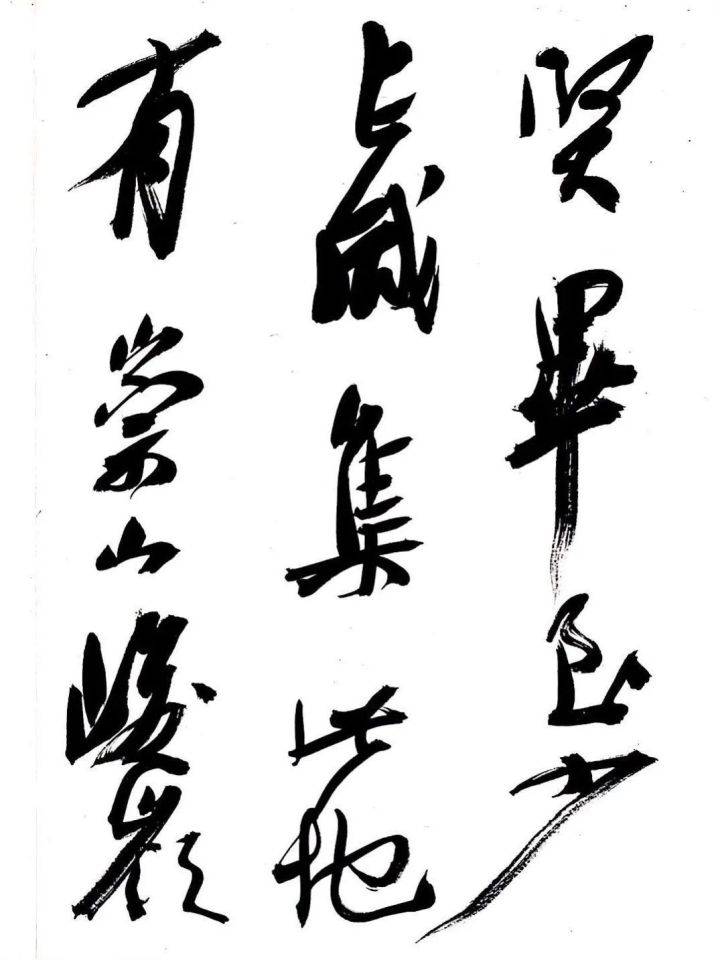 賢畢至少
長咸集此地
有崇山峻領